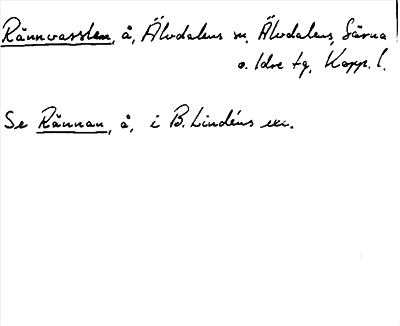 Rännvasslen, å, Älvdalens sn, Älvdalens, Särna
o. Idre tg, Kopp. l.
Se Rännan, å, i B. Lindéns ex.